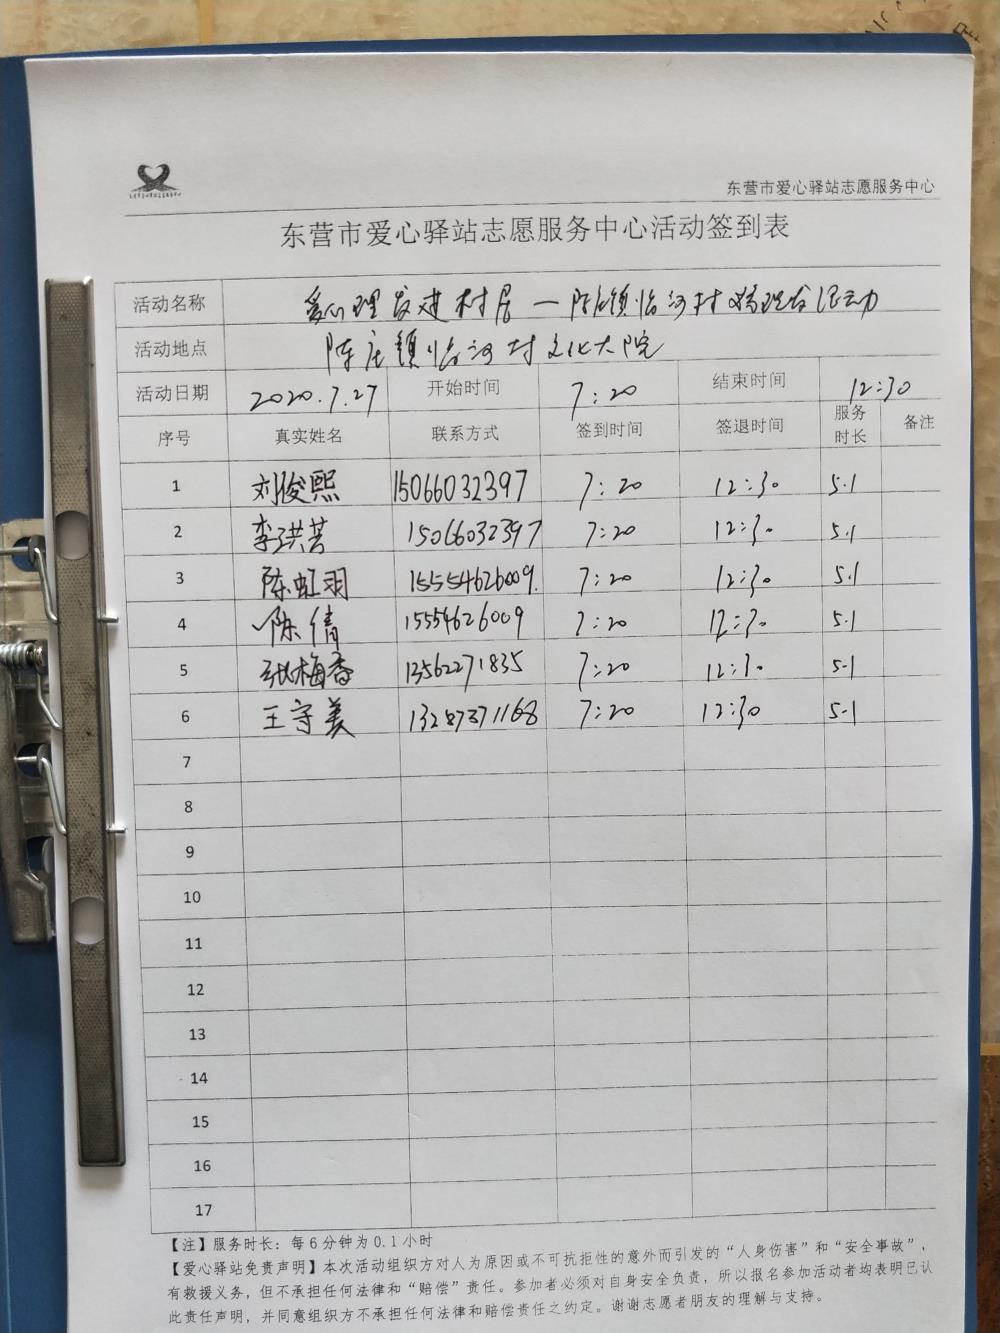 东营市爱心驿站志愿服务中心
东营市爱心驿站志愿服务中心活动签到表
活动名称 爱心理发进村居一陈庄镇临河村义务理发活动
活动地点 陈庄镇临河村文化大院
活动日期 2020.7.27 开始时间 7:20 结束时间 12:30
序号 真实姓名 联系方式 签到时间 签退时间 服务时长 备注
1 刘俊熙 15066032397 7:20 12:30 5.1
2 李洪芳 15066032397 7:20 12:30 5.1
3 陈虹羽 15554626009. 7:20 12:30 5.1
4 陈倩 15554626009 7:20 12:30 5.1
5 张梅香 13562271835 7:20 12:30 5.1
6 王守美 13287371168 7:20 12:30 5.1
7
8
9
10
11
12
13
14
15
16
17
【注】服务时长：每6分钟为0.1小时
【爱心驿站免责声明】本次活动组织方对人为原因或不可抗拒性的意外而引发的“人身伤害”和“安全事故”，
有救援义务，但不承担任何法律和“赔偿”责任。参加者必须对自身安全负责，所以报名参加活动者均表明已认
此责任声明，并同意组织方不承担任何法律和赔偿责任之约定。谢谢志愿者朋友的理解与支持。